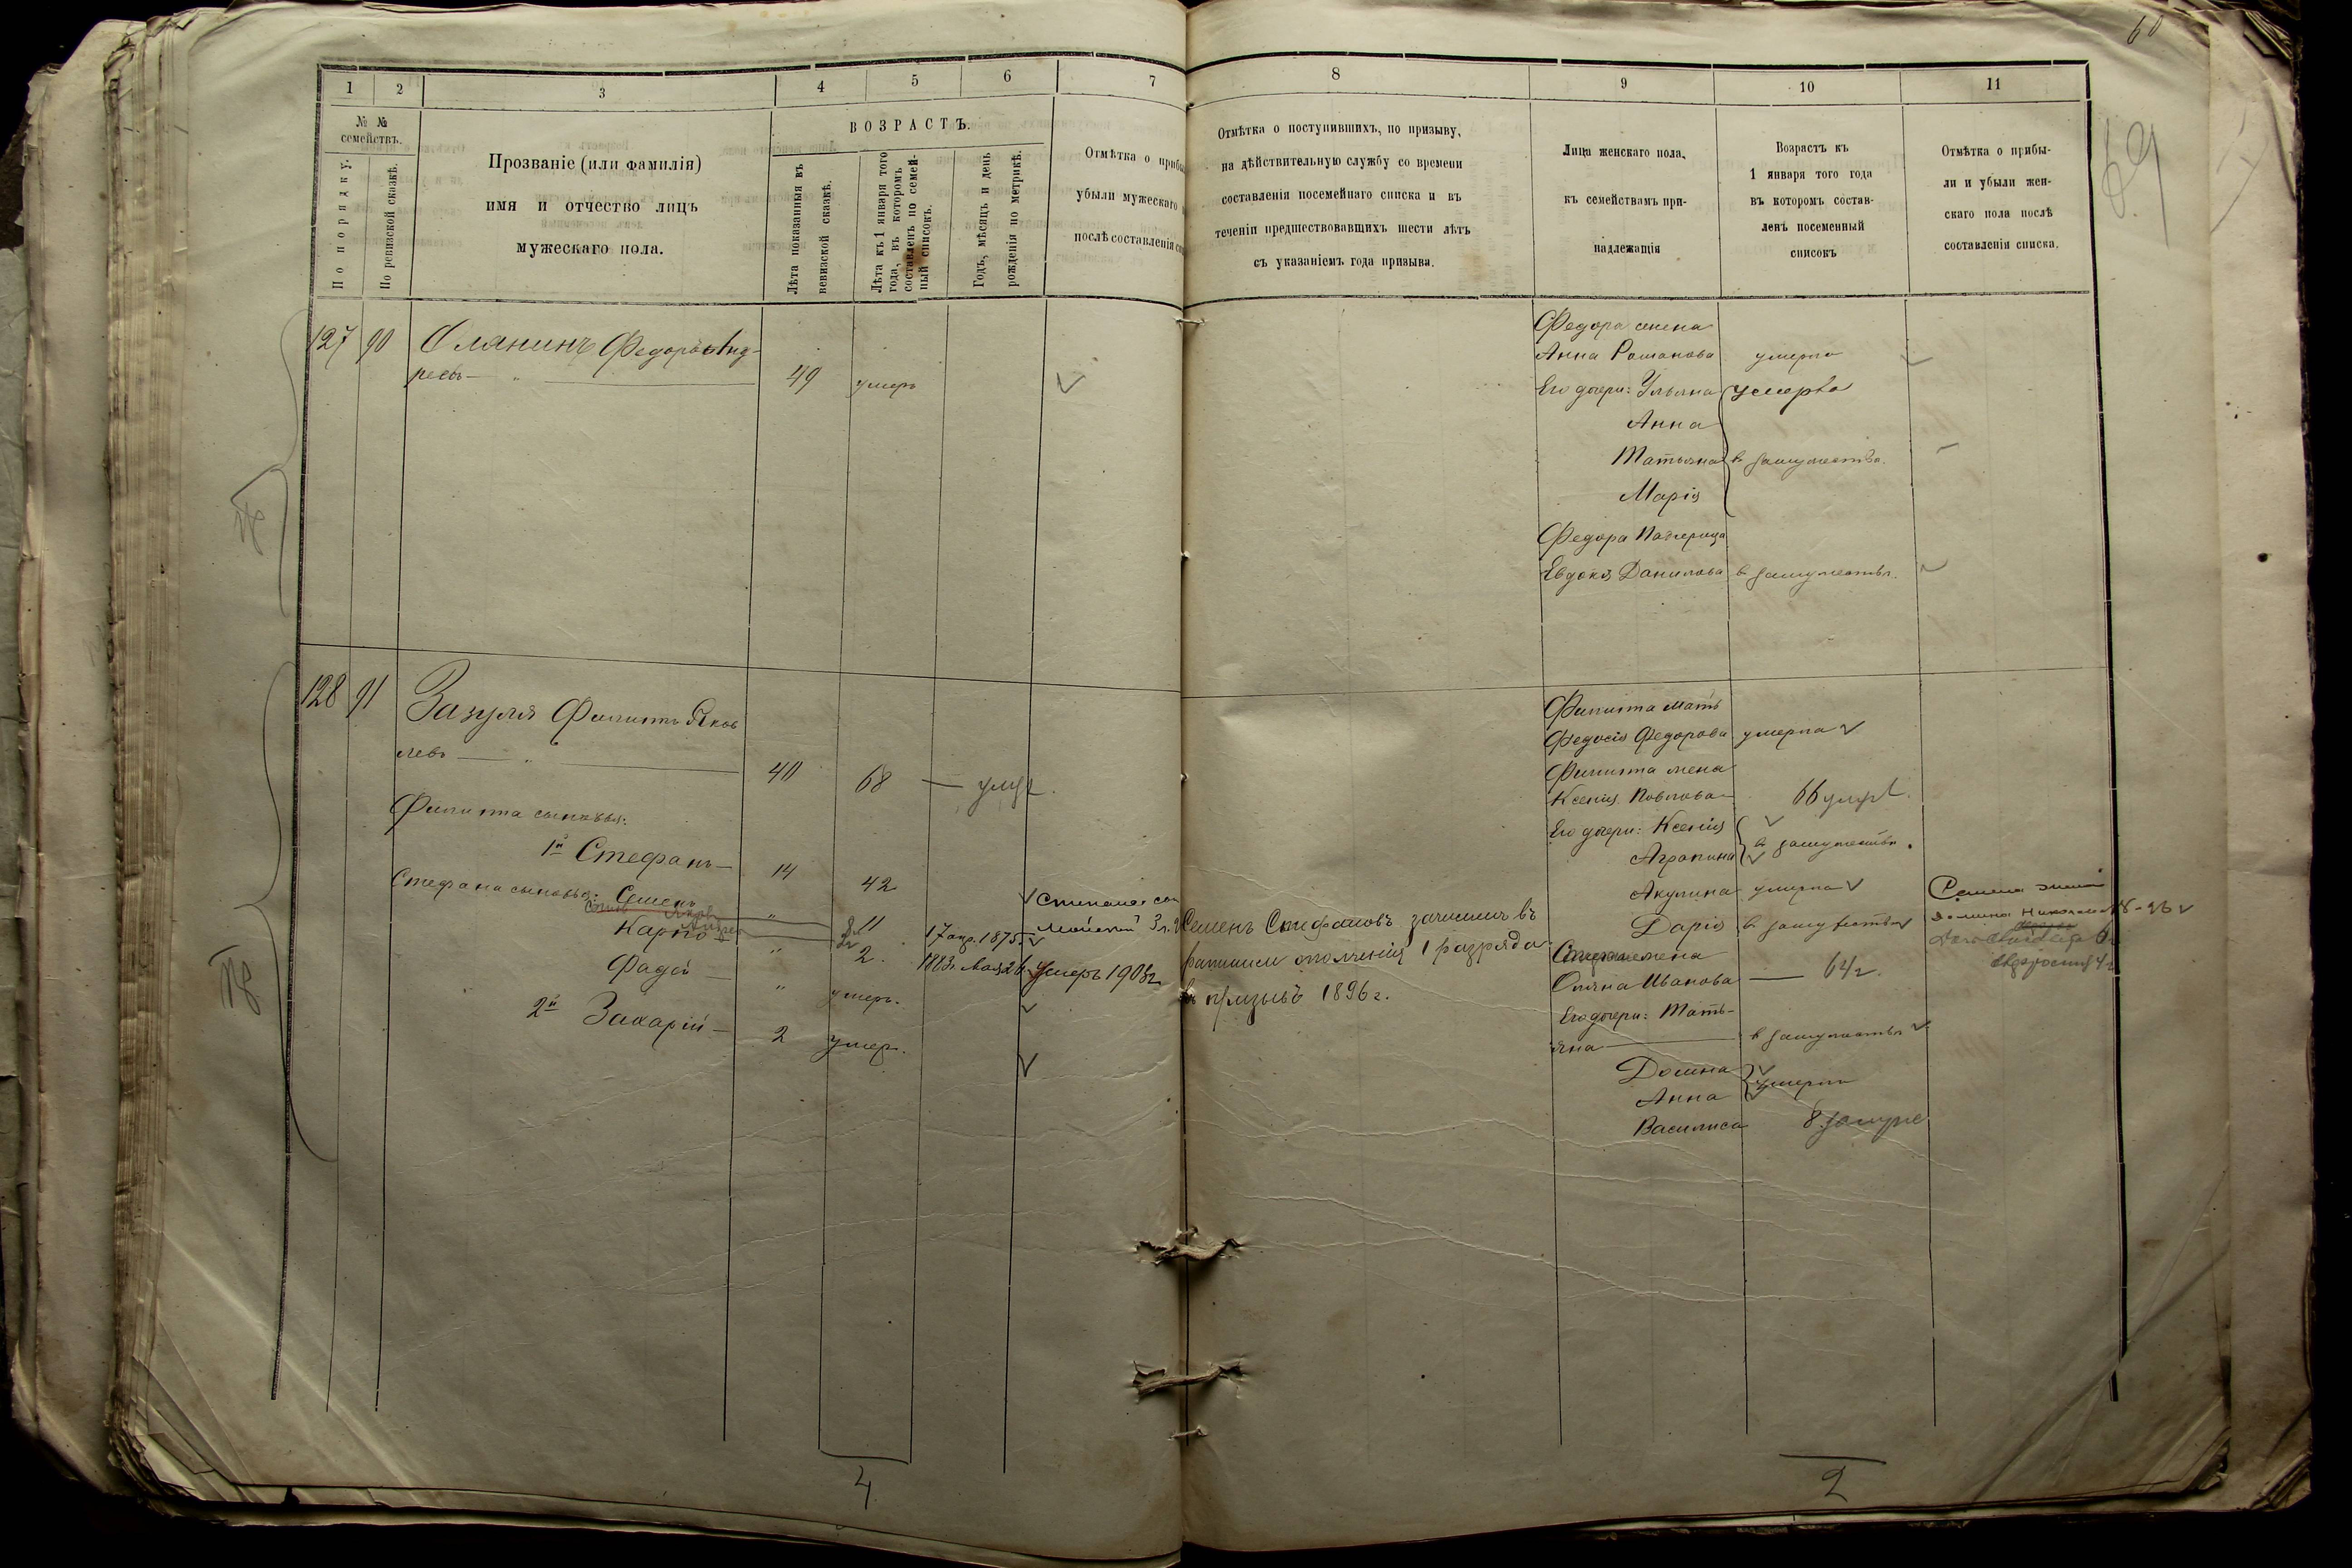 60
69
1
2
3
4
5
6
7
№ №
семействъ.
По порядку.
По ревизской сказкѣ.
Прозваніе (или фамилія)
имя и отчество лицъ
мужескаго пола.
ВОЗРАСТЪ.
Лѣта показанныя въ
ревизской сказкѣ.
Лѣта къ 1 января того
года, въ которомъ
составленъ по семей-
ный списокъ.
Годъ, мѣсяцъ и день
рожденія по метрикѣ.
Отмѣтка о прибы
убыли мужескаго
послѣ составленія
8
9
10
11
Отмѣтка о поступившихъ, по призыву,
на дѣйствительную службу со времени
составленія посемейнаго списка и въ
теченіи предшествовавшихъ шести лѣтъ
съ указаніемъ года призыва.
Лица женскаго пола,
къ семействамъ при-
надлежащія
Возрастъ къ
1 января того года
въ которомъ состав-
ленъ посеменный
списокъ
Отмѣтка о прибы-
ли и убыли жен-
скаго пола послѣ
составленія списка.
127 90 Олянинъ Федоръ Анд-
реевъ 49 умеръ
128 91 Зазуля Филиппъ Яков
левъ 40 68 — умер.
Филиппа сыновья:
1й Стефанъ — 14 42
Стефана сыновья: Семенъ " 11 17 апр. 1875.
Карпо " 2. 1883 г. Мая 26. Умеръ 1908 г.
Фадей — " умеръ.
2й Захарій — 2 умер.
4
Семенъ Стефановъ зачисленъ въ
ратники ополченія 1 разряда
въ призывѣ 1896 г.
Федора жена
Анна Романова умерла
Его дочери: Ульяна умерла
Анна
Матьяна в замужествѣ.
Марія
Федора Падчерица
Евдокія Данилова в замужествѣ.
Филиппа мать
Федосія Федорова умерла
Филиппа жена
Ксенія Павлова 66 умерл.
Его дочери: Ксенія
Агрипина в замужествѣ.
Акулина умерла
Дарія в замужествѣ
Семена жена
Домна Николаева
Евдокія
Стефана жена
Оляна Иванова — 64 г.
Его дочери: Мать-
яна — в замужествѣ
Домна
Анна умерли
Василиса 8 замуже
2